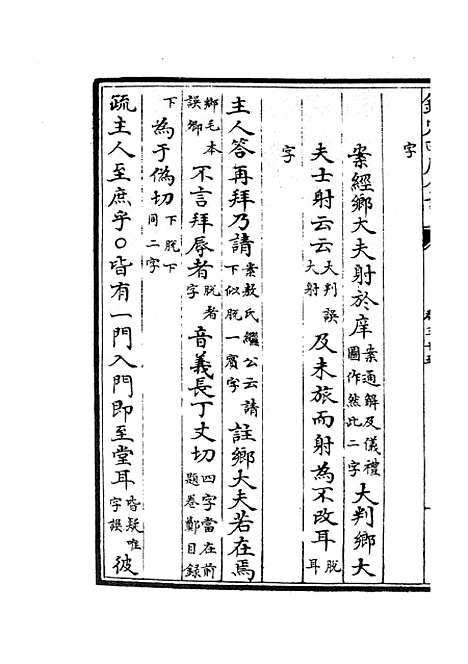 字
案經鄉大夫射於庠案通解及儀禮圖作然此二字大判鄉大
夫士射云云大判誤大射及未旅而射為不改耳脫耳
字
主人答再拜乃請案敖氏繼公云請下似脫一賓字註鄉大夫若在焉
鄉毛本誤卿不言拜辱者脫者字音義長丁丈切四字當在前題卷鄭目録
下為于偽切下脫下同二字
疏主人至庶乎○皆有一門入門即至堂耳皆疑唯字誤彼